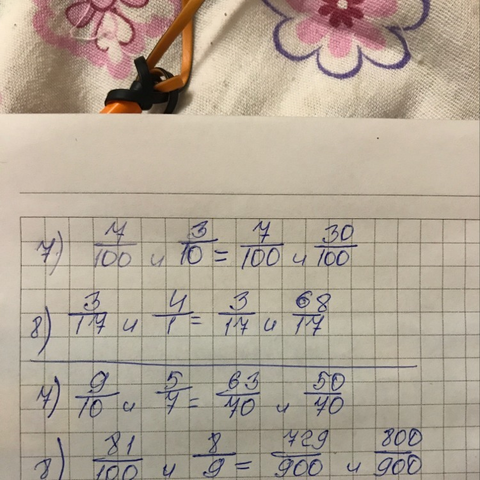 7) 7/100 и 3/10 = 7/100 и 30/100
8) 3/17 и 4/1 = 3/17 и 68/17
7) 9/10 и 5/7 = 63/70 и 50/70
8) 81/100 и 8/9 = 729/900 и 800/900